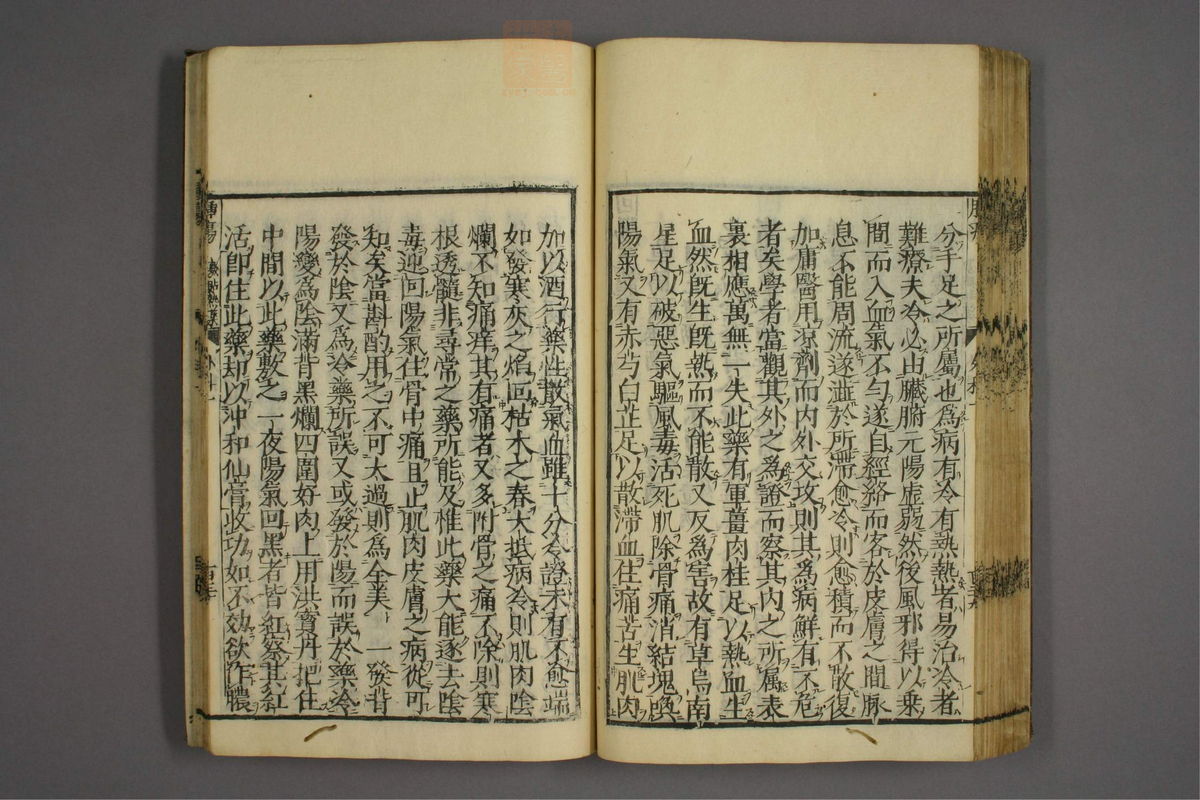 分手足之所屬也爲病有冷有熱熱者易治冷者
難療夫冷必由臟腑元陽虛弱然後風邪得以乗
間而入血氣不勻遂自經絡而客於皮膚之間脉
息不能周流遂澁於所滯愈冷則愈積而不散復
加庸醫用涼劑而内外交攻則其爲病鮮有不危
者矣學者當觀其外之爲證而察其内之所属表
裏相應萬無一失此藥有軍薑肉桂足以熱血生
血然旣生旣熱而不能散又反爲害故有草烏南
星足以破惡氣驅風毒活死肌除骨痛消結塊喚
陽氣又有赤芍白芷足以散滯血住痛苦生肌肉
加以酒行藥性散氣血雖十分冷證未有不愈端
如發寒灰之焰回枯木之春大抵病冷則肌肉陰
爛不知痛痒其有痛者又多附骨之痛不除則寒
根透髓非尋常之藥所能及惟此藥大能逐去陰
毒迎回陽氣住骨中痛且止肌肉皮膚之病從可
知矣當斟酌用之不可太過則爲全美　一發背
發於陰又爲冷藥所誤又或發於陽而誤於藥冷
陽變爲陰滿背黑爛四圍好肉上用洪寳丹把住
中間以此藥敷之一夜陽氣回黑者皆紅察其紅
活卽住此藥却以沖和仙膏收功如不効欲作膿